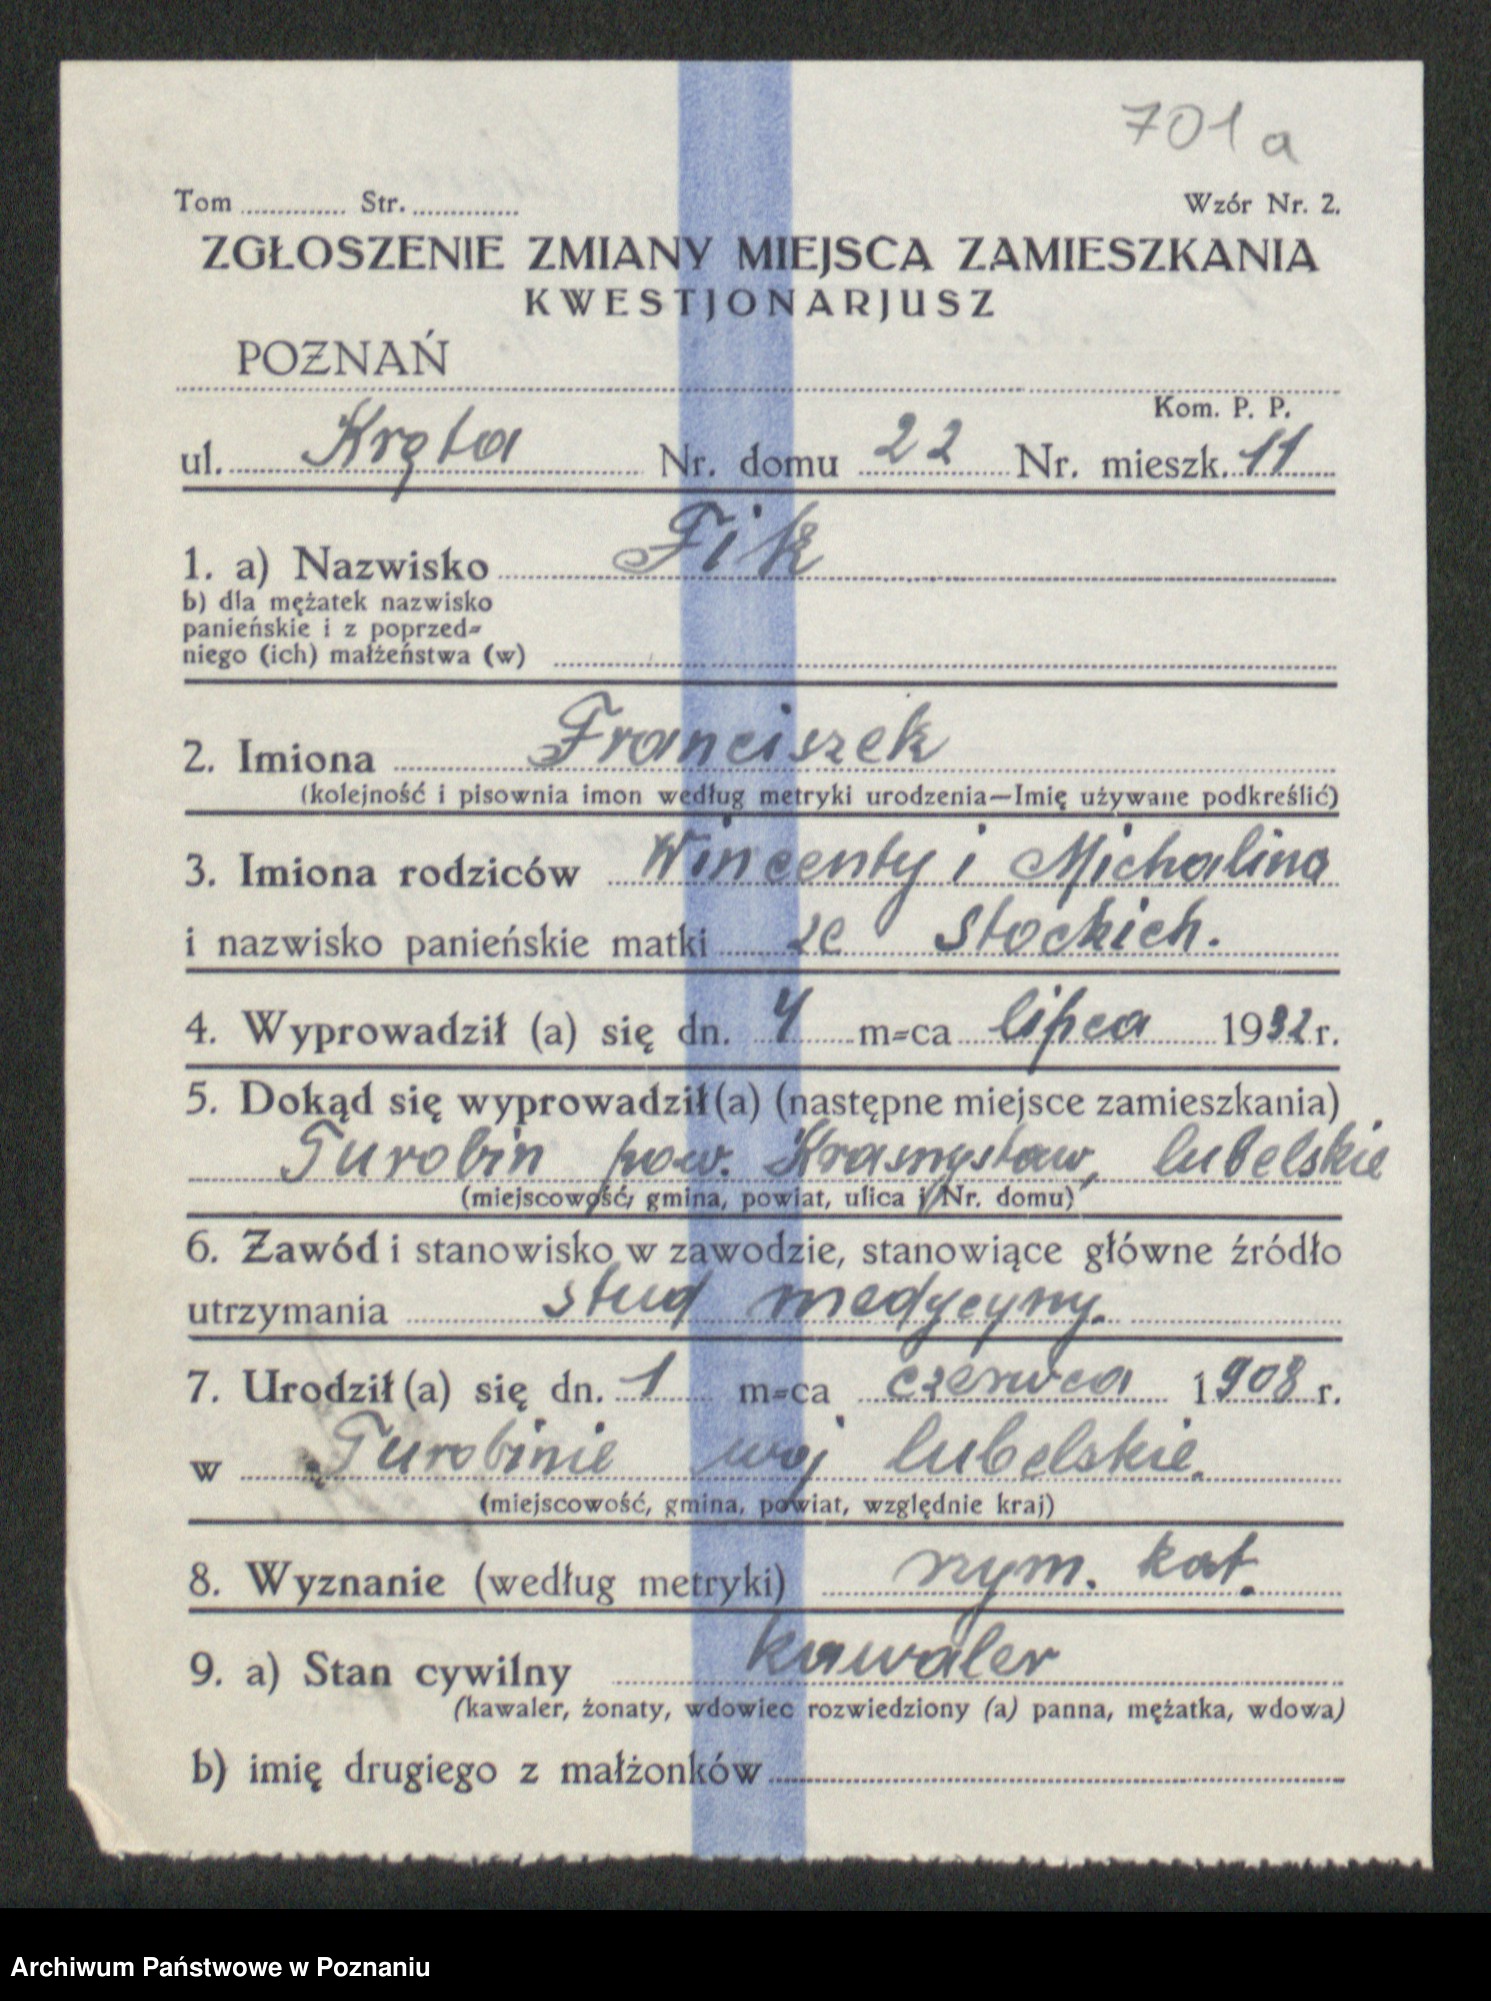 701a
Tom ............. Str. .............. Wzór Nr. 2.
ZGŁOSZENIE ZMIANY MIEJSCA ZAMIESZKANIA
KWESTJONARJUSZ
POZNAŃ
Kom. P. P.
ul. Kręta Nr. domu 22 Nr. mieszk. 11
1. a) Nazwisko Fik
b) dla mężatek nazwisko
panieńskie i z poprzed-
niego (ich) małżeństwa (w)
2. Imiona Franciszek
(kolejność i pisownia imon według metryki urodzenia—Imię używane podkreślić)
3. Imiona rodziców Wincenty i Michalina
i nazwisko panieńskie matki ze Stockich.
4. Wyprowadził (a) się dn. 4 m-ca lipca 1932 r.
5. Dokąd się wyprowadził (a) (następne miejsce zamieszkania)
Turobin pow. Krasnystaw, lubelskie
(miejscowość, gmina, powiat, ulica i Nr. domu)
6. Zawód i stanowisko w zawodzie, stanowiące główne źródło
utrzymania stud medycyny.
7. Urodził (a) się dn. 1 m-ca czerwca 1908 r.
w Turobinie woj lubelskie.
(miejscowość, gmina, powiat, względnie kraj)
8. Wyznanie (według metryki) rzym. kat.
9. a) Stan cywilny kawaler
(kawaler, żonaty, wdowiec rozwiedziony (a) panna, mężatka, wdowa)
b) imię drugiego z małżonków
Archiwum Państwowe w Poznaniu